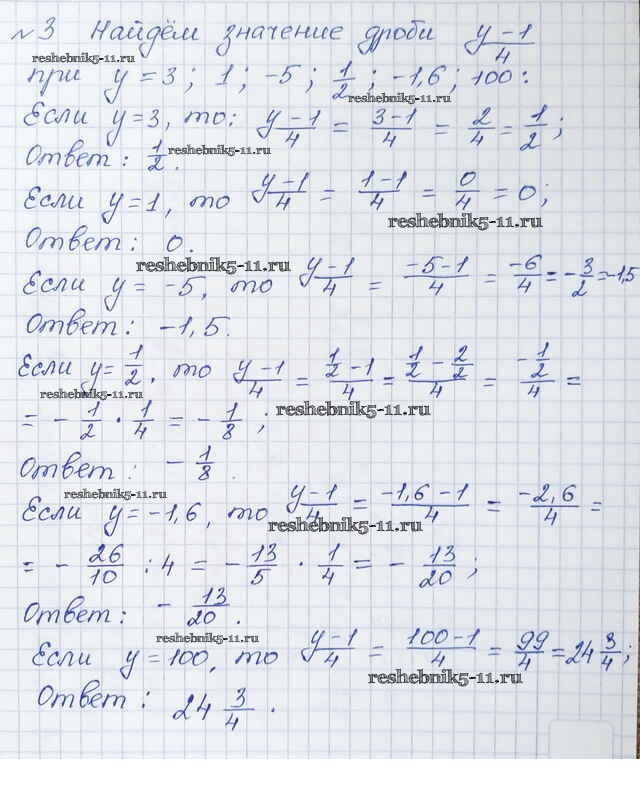 №3 Найдём значение дроби (y-1)/4
reshebnik5-11.ru
при y=3; 1; -5; 1/2; -1,6; 100:
reshebnik5-11.ru
Если y=3, то: (y-1)/4 = (3-1)/4 = 2/4 = 1/2;
Ответ: 1/2. reshebnik5-11.ru
Если y=1, то (y-1)/4 = (1-1)/4 = 0/4 = 0;
reshebnik5-11.ru
Ответ: 0.
reshebnik5-11.ru
Если y=-5, то (y-1)/4 = (-5-1)/4 = -6/4 = -3/2 = -1,5
Ответ: -1,5.
Если y=1/2, то (y-1)/4 = (1/2-1)/4 = (1/2-2/2)/4 = (-1/2)/4 =
reshebnik5-11.ru
reshebnik5-11.ru
= -1/2 · 1/4 = -1/8;
Ответ: -1/8.
reshebnik5-11.ru
Если y=-1,6, то (y-1)/4 = (-1,6-1)/4 = -2,6/4 =
reshebnik5-11.ru
= -26/10 : 4 = -13/5 · 1/4 = -13/20;
Ответ: -13/20.
reshebnik5-11.ru
Если y=100, то (y-1)/4 = (100-1)/4 = 99/4 = 24 3/4;
reshebnik5-11.ru
Ответ: 24 3/4.